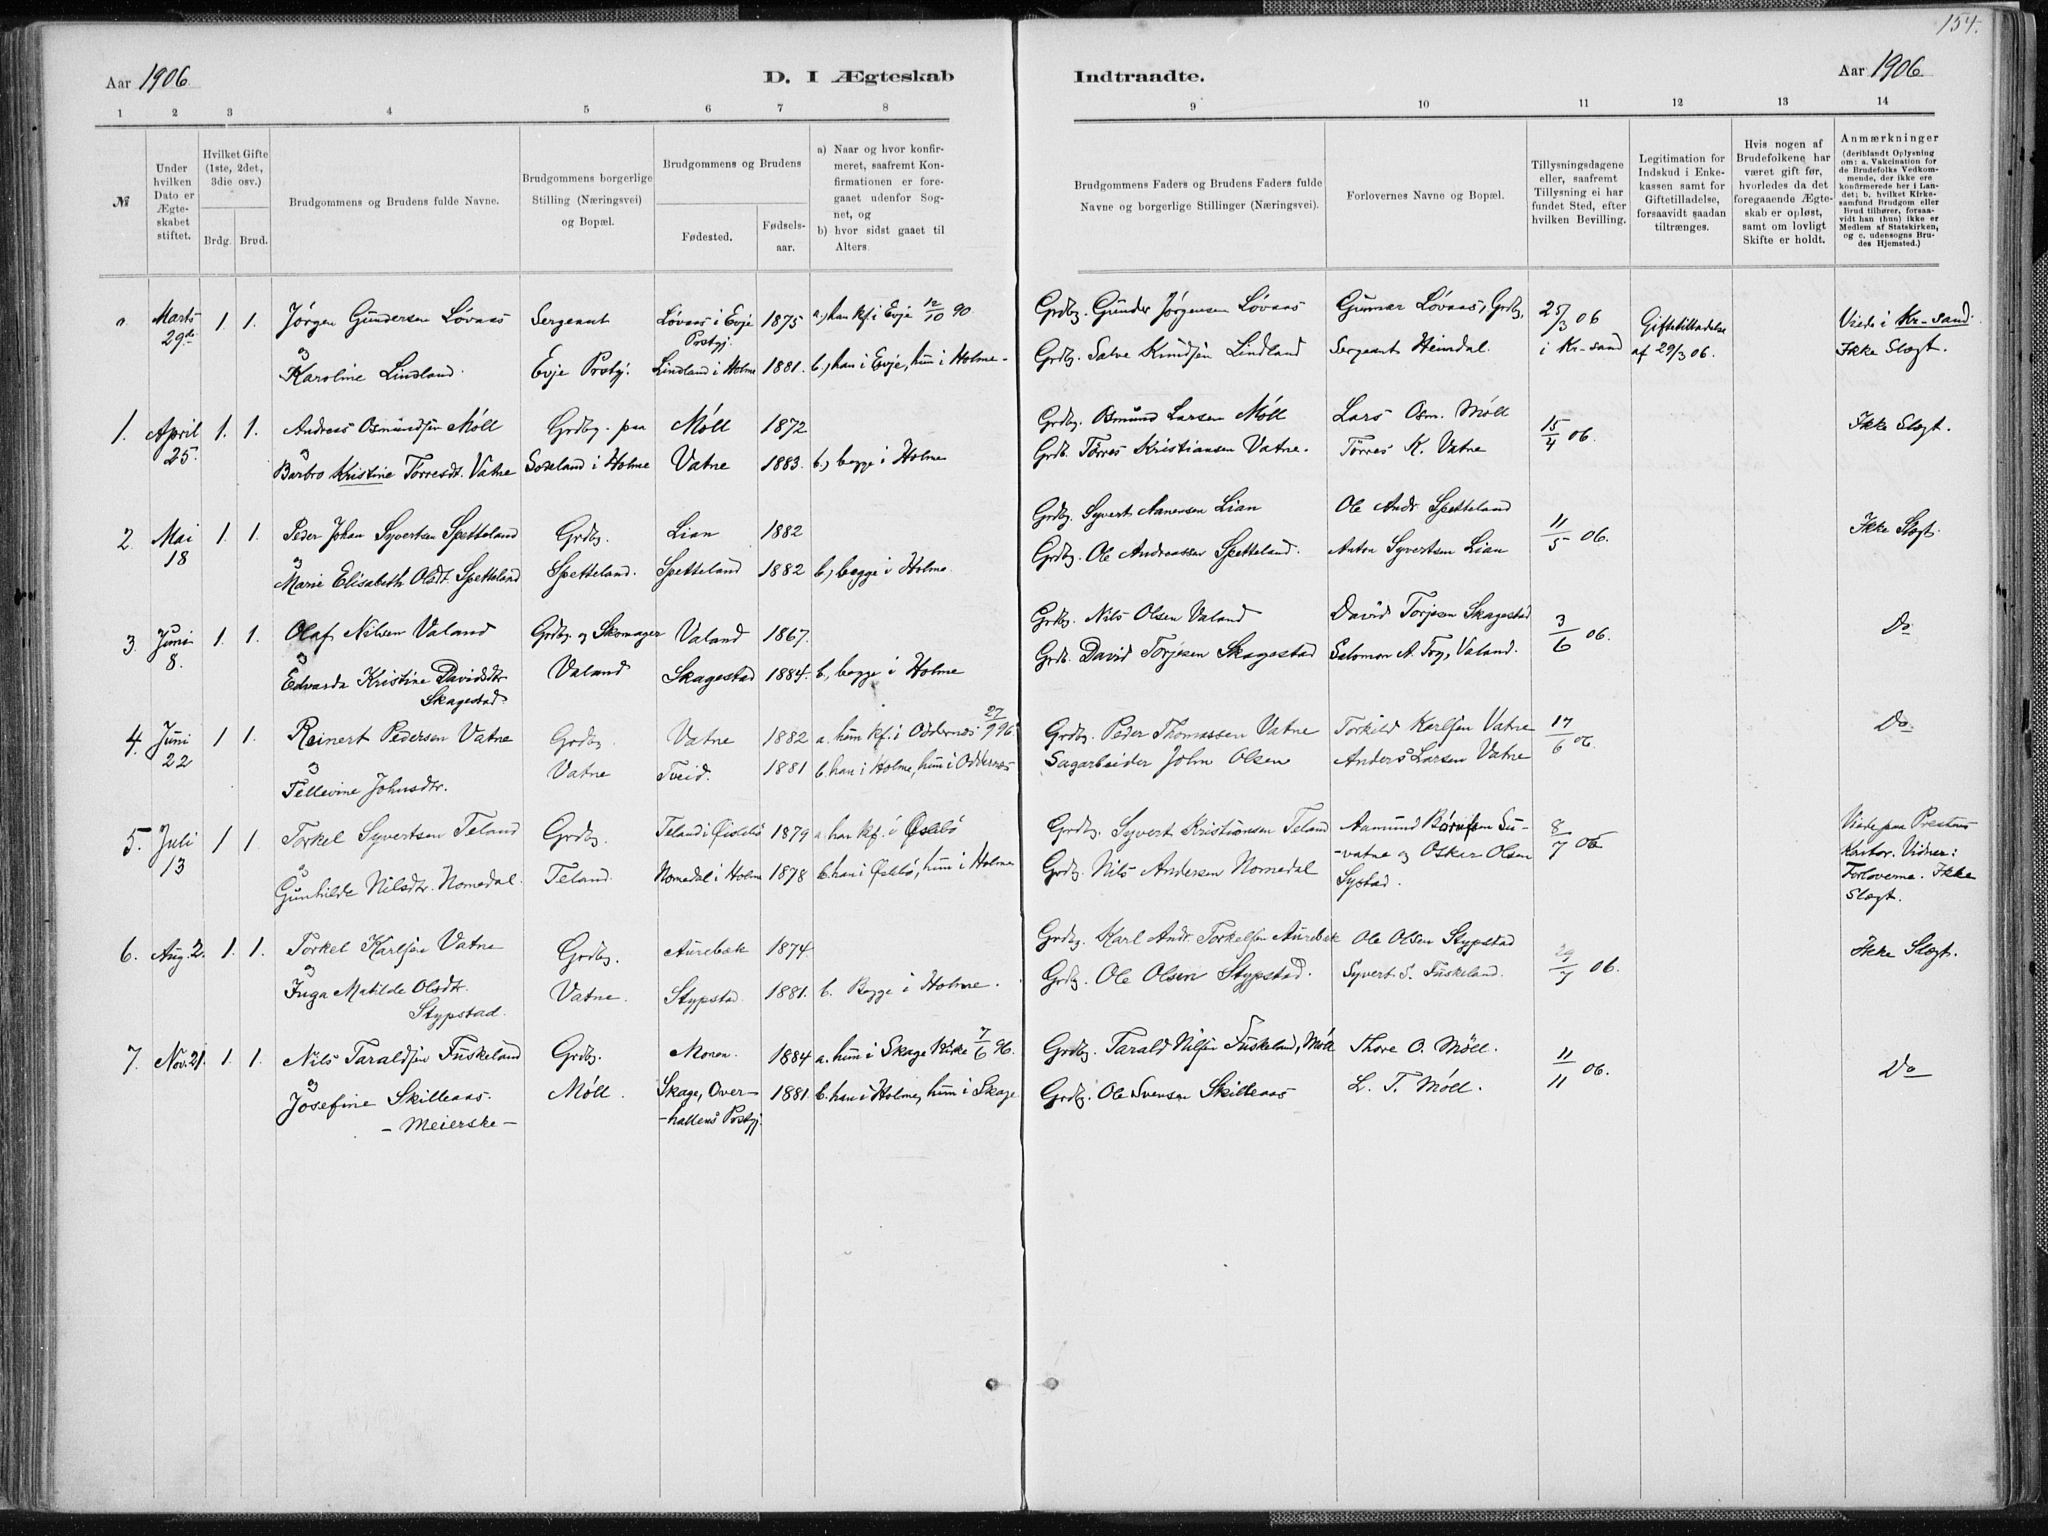 154.
Aar 1906
D. I Ægteskab
Indtraadte.
Aar 1906
1 2 3 4 5 6 7 8 9 10 11 12 13 14
№
Under hvilken Dato er Ægteskabet stiftet.
Hvilket Gifte (1ste, 2det, 3die osv.)
Brdg. Brud.
Brudgommens og Brudens fulde Navne.
Brudgommens borgerlige Stilling (Næringsvei) og Bopæl.
Brudgommens og Brudens
Fødested. Fødselsaar.
a) Naar og hvor konfirmeret, saafremt Konfirmationen er foregaaet udenfor Sognet, og
b) hvor sidst gaaet til Alters.
Brudgommens Faders og Brudens Faders fulde Navne og borgerlige Stillinger (Næringsvei).
Forlovernes Navne og Bopæl.
Tillysningsdagene eller, saafremt Tillysning ei har fundet Sted, efter hvilken Bevilling.
Legitimation for Indskud i Enkekassen samt for Giftetilladelse, forsaavidt saadan tiltrænges.
Hvis nogen af Brudefolkene har været gift før, hvorledes da det foregaaende Ægteskab er opløst, samt om lovligt Skifte er holdt.
Anmærkninger
(deriblandt Oplysning om: a. Vakcination for de Brudefolks Vedkommende, der ikke ere konfirmerede her i Landet; b. hvilket Kirkesamfund Brudgom eller Brud tilhører, forsaavidt han (hun) ikke er Medlem af Statskirken, og c. udensogns Brudes Hjemsted.)
Marts 29de 1. 1. Jørgen Gundersen Løvaas Sergeant Løvaas i Evje Prstgj. 1875 a, han kf. i Evje 12/10 90 Grdbg. Gunder Jørgensen Løvaas Gunnar Løvaas, Grdbg, 25/3 06 Giftetilladelse Viede i Kr-sand.
& Karoline Lindland. Evje Prstgj. Lindland i Holme 1881. b, han i Evje, hun i Holme- Grdbg. Salve Knudsen Lindland Sergeant Heimdal. i Kr-sand af 29/3 06. Ikke Slægt.
1. April 25 1. 1. Andreas Osmundsen Møll Grdbg. paa Møll 1872 Grdbg. Osmund Larsen Møll Lars Osm. Møll 15/4 06. Ikke Slegt.
& Barbro Kristine Tørresdt. Vatne Soseland i Holme Vatne 1883. b, begge i Holme Grdb. Tørres Kristiansen Vatne. Tørres K. Vatne
2. Mai 18 1. 1. Peder Johan Syvertsen Spetteland Grdbg. Lian 1882 Grdbg. Syvert Nanensen Lian Ole Andr Spetteland 11/5 06. Ikke Slegt.
& Marie Elisabeth Olsdt. Spetteland Spetteland. Spetteland 1882 b, begge i Holme. Grdbg. Ole Andreassen Spetteland. Anton Syvertsen Lian
3. Juni 8. 1. 1. Olaf Nilsen Valand Grdbg og Skomager Valand 1867. Grdbg. Nils Olsen Valand David Torjesen Skagestad 3/6 06. Do
& Edvarda Kristine Davidsdtr Skagestad Valand Skagestad 1884. b, begge i Holme Grdb. David Torjesen Skagestad Salomon A. Tog, Valand.
4. Juni 22 1 1. Reinert Pedersen Vatne Grdbg. Vatne 1882 a. hun kf. i Oddernes 27/9 96 Grdbg. Peder Thomassen Vatne Torkild Karlsen Vatne 17/6 06. Do
& Tellevine Johnsdtr. Vatne Tveid. 1881 b. han i Holme, hun i Oddernes Sagarbeider John Olsen Anders Larsen Vatne
5. Juli 13 1 1. Torkel Syvertsen Teland Grdbg. Teland i Øislebø 1879 a. han kf. i Øslebø Grdbg. Syvert Kristiansen Teland Aamund Børufsen Su- 8/7 06 Viede paa Prestens
& Gunhilde Nilsdtr. Nomedal. Teland. Nomedal i Holm 1878 b. han i Øslebø, hun i Holme Grdbg. Nils Andersen Nomedal -vatne og Oskar Olsen Systad. Kontor. Vidner: Forloverne. Ikke Slægt.
6. Aug. 2. 1. 1. Torkel Karlsen Vatne Grdbg. Aurebæk 1874 Grdbg. Karl Andr. Torkelsen Aurebæk Ole Olsen Stypstad 29/7 06. Ikke Slægt.
& Inga Matilde Olsdtr. Stypstad. Vatne. Stypstad. 1881. b. Begge i Holme. Grdbg. Ole Olsen Stypstad. Syvert S. Fuskeland.
7. Nov. 21. 1. 1. Nils Taraldsen Fuskeland Grdbg. Monen. 1884 a. hun i Skage Kirke 7/6 96. Grdbg. Tarald Nilsen Fuskeland, Møll Thore O. Møll. 11/11 06. Do
& Josefine Skilleaas. - Meierske - Møll. Skage, Over- -hallens Prstgj. 1881. b. han i Holme, hun i Skage Grdbg. Ole Svensen Skilleaas L. T. Møll.